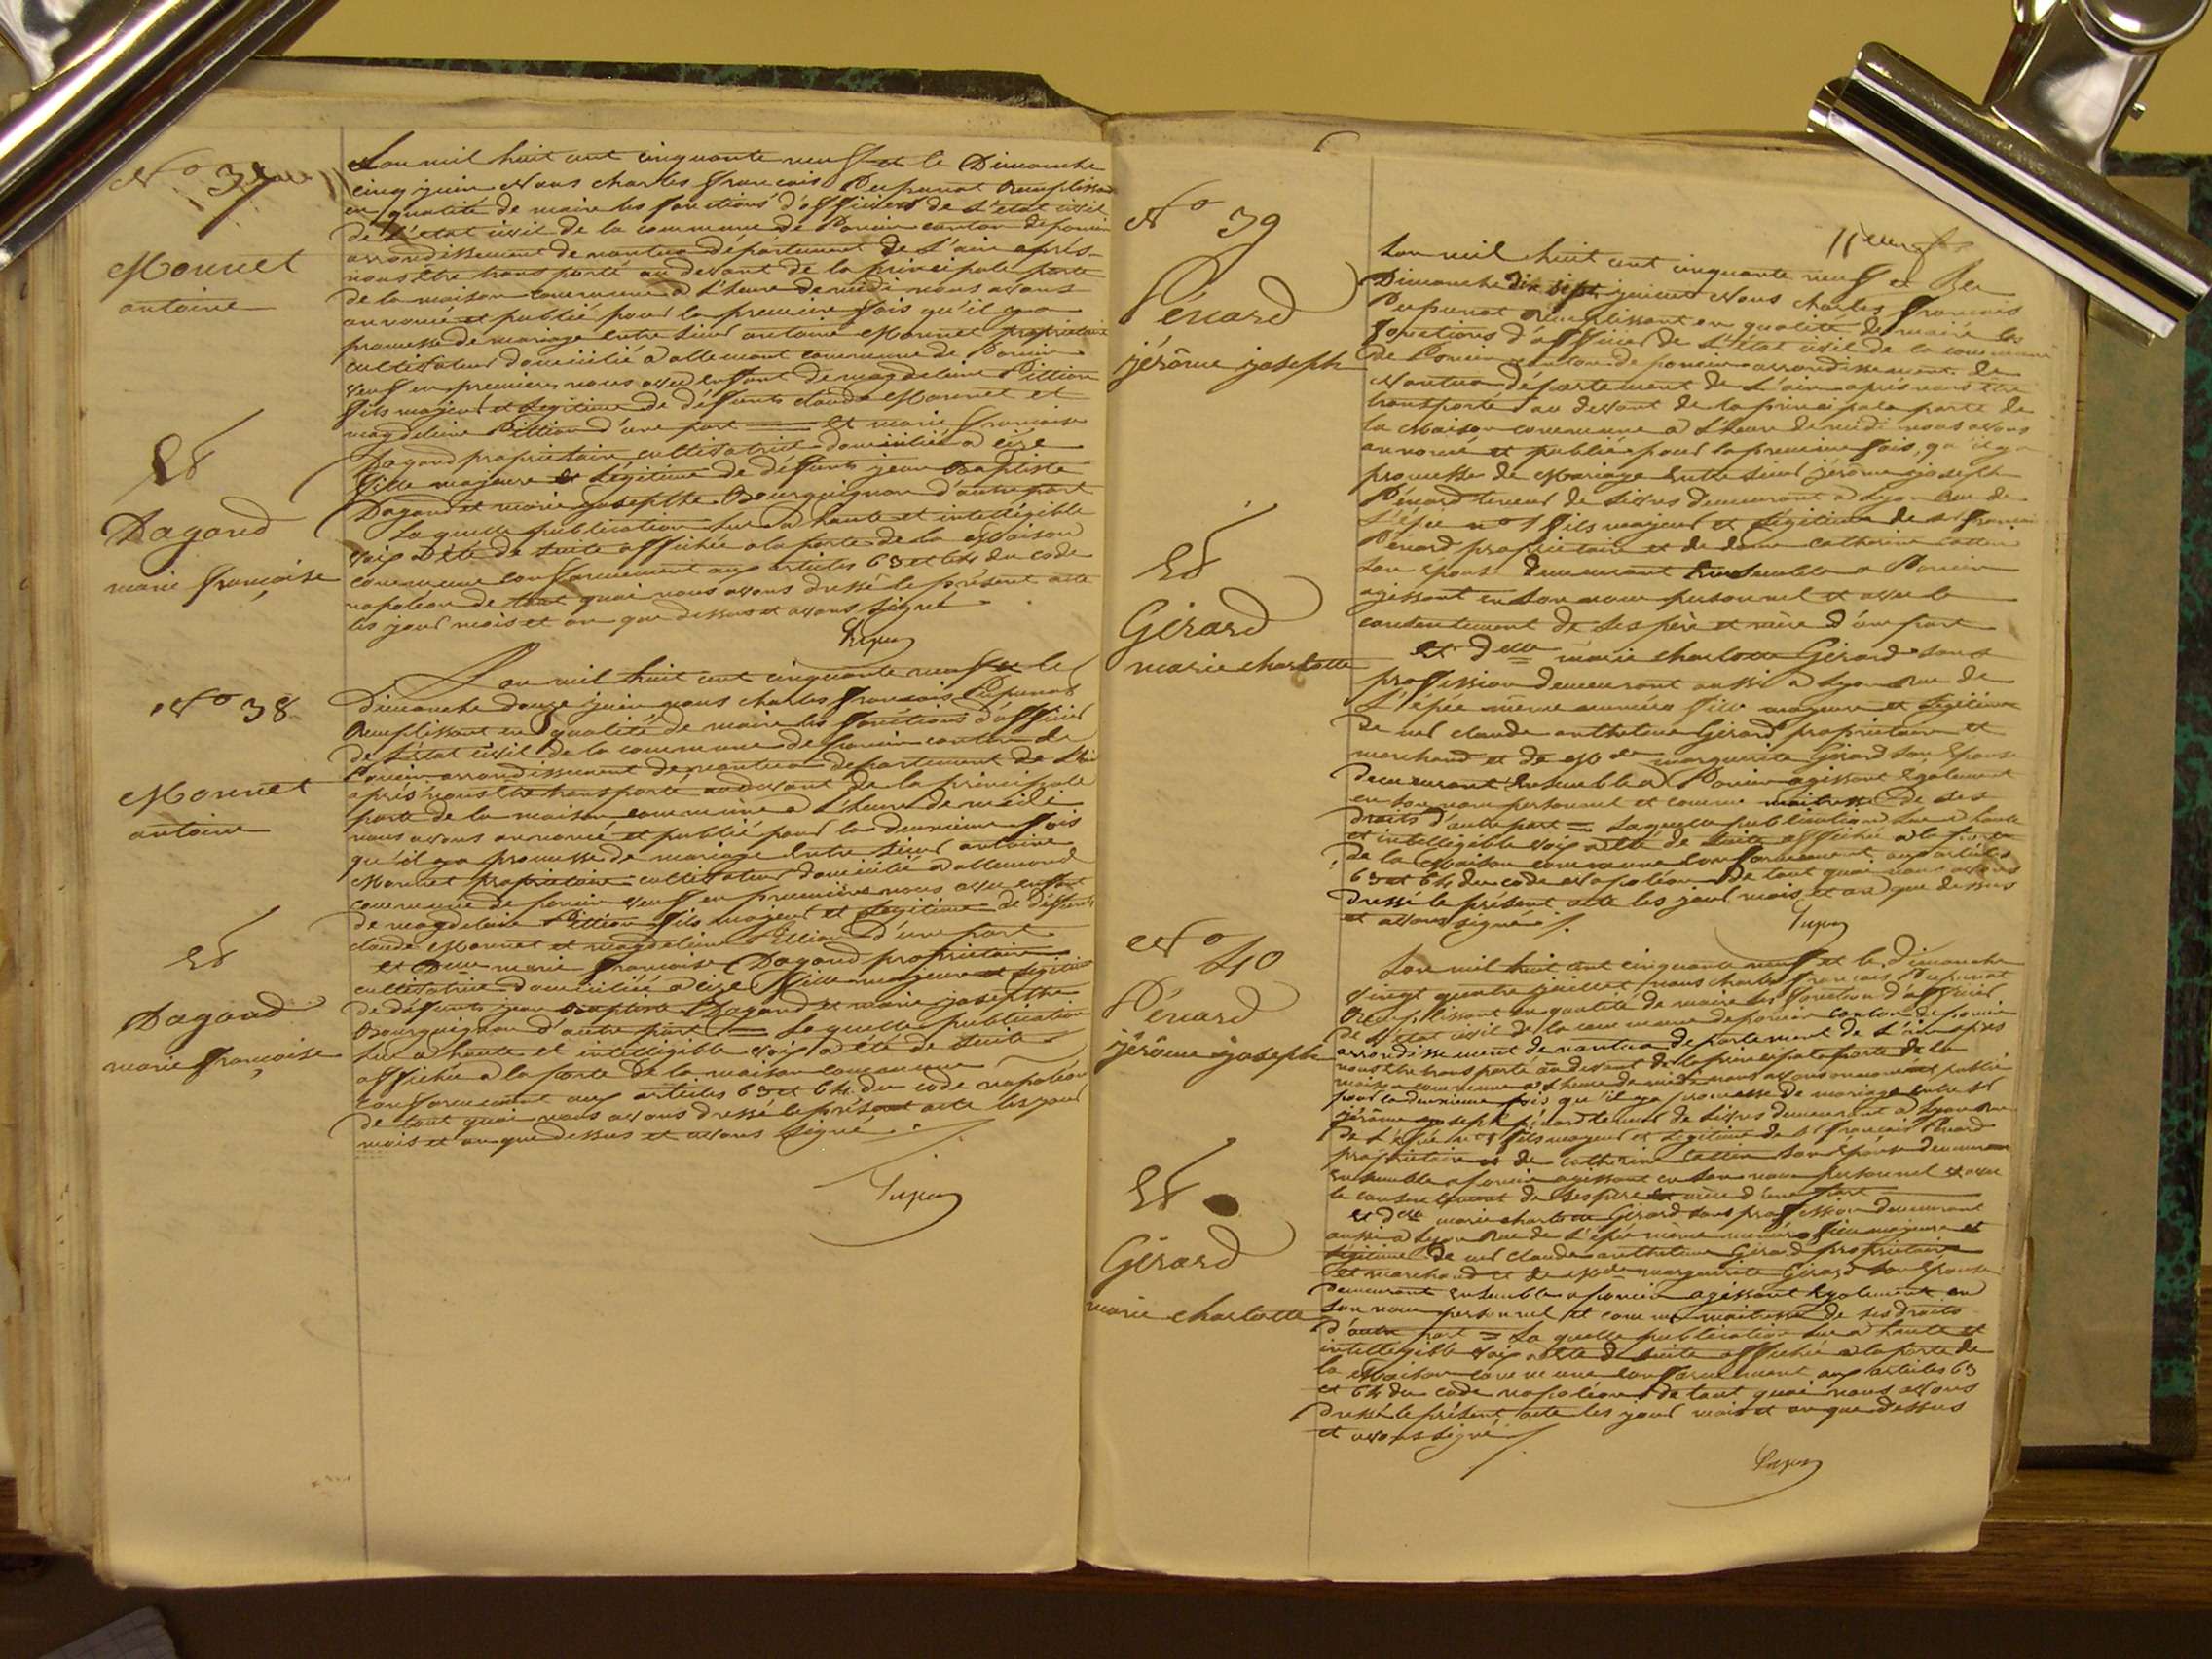 N° 37
Monnet
antoine
Et
Dagand
marie françoise
L'an mil huit cent cinquante neuf et le Dimanche
cinq juin Nous charles françois remplissant
en qualité de maire les fonctions d'officier de L'etat civil
de L'etat civil de la commune de Poncin canton de poncin
arrondissement de nantua département de L'ain après
nous être transporté au devant de la principale porte
de la maison commune à L'heure de midi nous avons
annoncé et publié pour la premiere fois qu'il y a
promesse de mariage entre sieur antoine Monnet propriétaire
cultivateur domicilié à allemont commune de Poncin
veuf en premieres noces avec enfant de magdeleine Pittion
fils majeur et Legitime de défunts claude Monnet et
magdeleine Pittion d'une part et marie françoise
Dagand propriétaire cultivatrice domiciliée à cize
fille majeure et Légitime de défunts jean Baptiste
Dagand et marie josepthe Bourguignon d'autre part
Laquelle publication lue à haute et intelligible
voix a été de suite affichée à la porte de la Maison
commune conformement aux articles 63 et 64 du code
napoléon de tout quoi nous avons dressé le présent acte
les jour mois et an que dessus et avons signé
N° 38
Monnet
antoine
Et
Dagand
marie françoise
L'an mil huit cent cinquante neuf et le
Dimanche douze juin nous charles françois
Remplissant en qualité de maire les fonctions d'officier
de L'etat civil de la commune de poncin canton de
Poncin arrondissement de nantua departement de L'ain
après nous être transporté au devant de la principale
porte de la maison commune à L'heure de midi
nous avons annoncé et publié pour la deuxieme fois
qu'il y a promesse de mariage entre sieur antoine
Monnet propriétaire cultivateur domicilié à allemond
commune de poncin veuf en premières noces avec enfant
de magdeleine Pittion fils majeur et Legitime de défunts
claude Monnet et magdeleine Pittion d'une part
et Delle marie françoise Dagand propriétaire
cultivatrice domiciliée à cize fille majeure et Legitime
de défunts jean Baptiste Dagand et marie josepthe
Bourguignon d'autre part = Laquelle publication
lue à haute et intelligible voix a été de suite
affichée à la porte de la maison commune
conformement aux articles 63 et 64 du code napoléon
de tout quoi nous avons dressé le présent acte les jour
mois et an que dessus et avons signé
N° 39
Pénard
jérôme joseph
Et
Girard
marie charlotte
L'an mil huit cent cinquante neuf et Le
Dimanche dix sept Nous charles françois
remplissant en qualité de maire les
fonctions d'officier de L'état civil de la commune
de Poncin canton de poncin arrondissement de
Nantua département de L'ain après nous être
transporté au devant de la principale porte de
la Maison commune à L'heure de midi nous avons
annoncé et publié pour la premiere fois, qu'il y a
promesse de Mariage entre sieur jérôme joseph
Pénard teneur de Livres demeurant à Lyon Rue de
L'épée n° fils majeur et Légitime de Sr françois
Pénard propriétaire et de dame catherine
son epouse demeurant Ensemble à Poncin
agissant en son nom personnel et avec le
consentement de ses père et mère d'une part
et Delle marie charlotte Girard sans
profession demeurant aussi à Lyon Rue de
L'épée même numéro fille majeure et Légitime
De Mr claude anthelme Girard propriétaire et
marchand et de Mde marguerite Girard son Epouse
demeurant Ensemble à Poncin agissant Egalement
en son nom personnel et comme maitresse de ses
droits d'autre part = Laquelle publication lue à haute
et intelligible voix a été de suite affichée à la porte
de la Maison commune conformement aux articles
63 et 64 du code Napoléon De tout quoi nous avons
Dressé le présent acte les jour mois et an que dessus
et avons signé
N° 40
Pénard
jérôme joseph
Et
Girard
marie charlotte
L'an mil huit cent cinquante neuf et le Dimanche
vingt quatre juillet nous charles françois
Remplissant en qualité de maire les fonction d'officier
de L'état civil de la commune de poncin canton de poncin
arrondissement de nantua departement de L'ain après
nous être transporté au devant de la principale porte de la
maison commune à L'heure de midi nous avons annoncé et publié
pour la deuxieme fois qu'il y a promesse de mariage entre Sr
jérôme joseph Pénard teneur de Livres demeurant à Lyon Rue
de L'épée n° fils majeur et Legitime de Sr françois Pénard
propriétaire et de catherine son épouse demeurant
Ensemble à poncin agissant en son nom personnel et avec
le consentement de ses père et mère d'une part
et Delle marie charlotte Girard sans profession demeurant
aussi à Lyon Rue de L'épée même numéro fille majeure et
Légitime de Mr claude anthelme Girard propriétaire
et marchand et de Mde marguerite Girard son Epouse
demeurant Ensemble à poncin agissant Egalement en
son nom personnel et comme maitresse de ses droits
d'autre part = Laquelle publication lue à haute et
intelligible voix a été de suite affichée à la porte de
la Maison commune conformement aux articles 63
et 64 du code napoléon de tout quoi nous avons
dressé le présent acte les jour mois et an que dessus
et avons signé